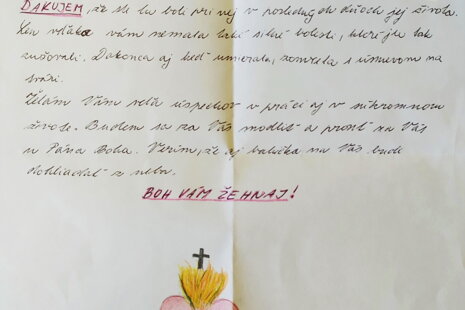 ĎAKUJEM, že ste tu boli pri nej v posledných dňoch jej života.
Len vďaka vám nemala také silné bolesti, ktoré ju tak
sužovali. Dokonca aj keď umierala, zomrela s úsmevom na
tvári.
Želám Vám veľa úspechov v práci aj v súkromnom
živote. Budem sa za Vás modliť a prosiť za Vás
u Pána Boha. Verím, že aj babička na Vás bude
dohliadať z neba.
BOH VÁM ŽEHNAJ!